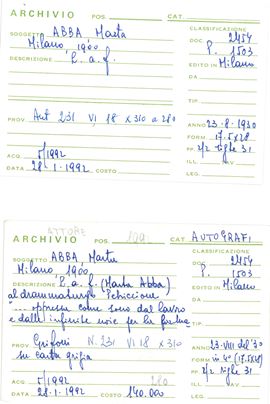 ARCHIVIO POS. CAT.
CLASSIFICAZIONE
SOGGETTO ABBA Marta DOC. 2454
Milano, 1900 P. 1503
DESCRIZIONE L. a. f. EDITO IN Milano
DA
TIP.
PROV. Aut 231 VI 18 x 310 a 280 ANNO 23-8-1930
FORM. 17.5x28
PP. 2/2 righe 31
ACQ. 5/1992 AUT.
DATA 28-1-1992 COSTO LEG.
ATTORE 199
ARCHIVIO POS. CAT. AUTOGRAFI
CLASSIFICAZIONE
SOGGETTO ABBA, Marta DOC. 2454
Milano 1900 P. 1503
DESCRIZIONE L. a. f. (Marta Abba) EDITO IN Milano
al drammaturgo DA
oppressa come sono dal lavoro
e dalle infinite noie per la TIP.
PROV. Grifoni N. 231 VI 18 x 310 ANNO 23-VIII del '30
su carta grigia FORM. in 4° (17.5x28)
PP. 2/2 righe 31
ACQ. 5/1992 280 AUT.
DATA 28-1-1992 COSTO 140.000 LEG.